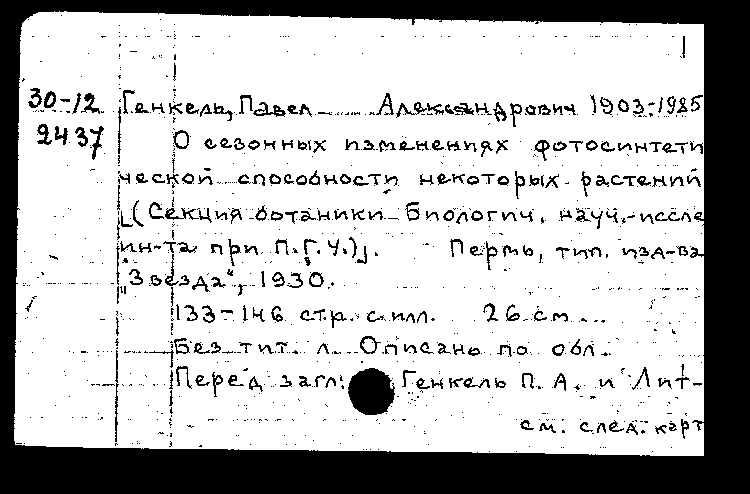 30-12 Генкель, Павел Александрович 1903-1985
2437 О сезонных изменениях фотосинтети
ческой способности некоторых растений
[(Секция ботаники Биологич. науч.-иссле
ин-та при П.Г.У.)]. Пермь, тип. изд-ва
„Звезда“, 1930.
133-146 стр. с илл. 26 см...
Без тит. л. Описано по обл.
Перед загл: Генкель П. А. и Лит-
см. след. карт